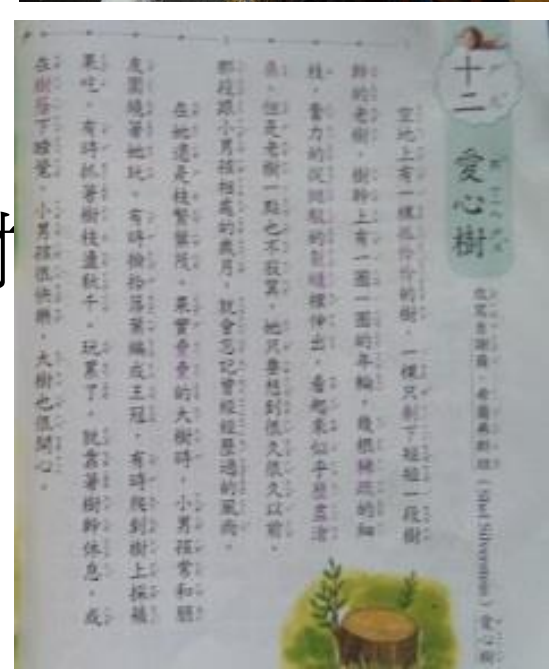 十二 愛心樹
改寫自謝爾．希爾弗斯坦（Shel Silverstein）愛心樹
空地上有一棵孤伶伶的樹，一棵只剩下短短一段樹
幹的老樹，樹幹上有一圈一圈的年輪，幾根稀疏的細
枝，奮力的從斑駁的裂縫裡伸出，看起來似乎歷盡滄
桑。但是老樹一點也不寂寞，她只要想到很久很久以前，
那段跟小男孩相處的歲月，就會忘記曾經經歷過的風雨。
在她還是枝繁葉茂、果實纍纍的大樹時，小男孩常和朋
友圍繞著她玩。有時撿拾落葉編成王冠，有時爬到樹上採蘋
果吃，有時抓著樹枝盪秋千。玩累了，就靠著樹幹休息，或
在樹蔭下睡覺。小男孩很快樂，大樹也很開心。